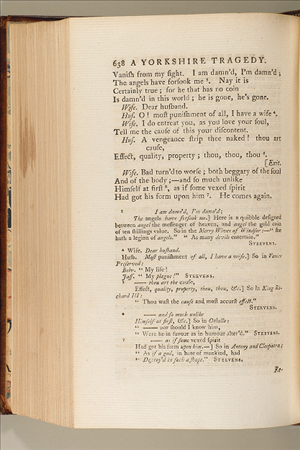 638 A YORKSHIRE TRAGEDY.
Vaniſh from my ſight. I am damn'd, I'm damn'd;
The angels have forſook me ⁵. Nay it is
Certainly true; for he that has no coin
Is damn'd in this world; he is gone, he's gone.
Wife. Dear huſband.
Huſ. O! moſt puniſhment of all, I have a wife ⁶.
Wife. I do entreat you, as you love your ſoul,
Tell me the cauſe of this your diſcontent.
Huſ. A vengeance ſtrip thee naked! thou art
cauſe,
Effect, quality, property; thou, thou, thou ⁷.
[Exit.
Wife. Bad turn'd to worſe; both beggary of the ſoul
And of the body;—and ſo much unlike
Himſelf at firſt ⁸, as if ſome vexed ſpirit
Had got his form upon him ⁹. He comes again.
I am damn'd, I'm damn'd;
The angels have forſook me.] Here is a quibble deſigned
between angel the meſſenger of heaven, and angel the gold coin
of ten ſhillings value. So in the Merry Wives of Windſor—" he
hath a legion of angels." " As many devils entertain
STEEVENS.
⁶ Wife. Dear huſband.
Huſb. Moſt puniſhment of all, I have a wife.] So in Venice
Preſerved:
Belv. " My life!
Jaff. " My plague!" STEEVENS.
⁷ —— thou art the cauſe,
Effect, quality, property, thou, thou, &c.] So in King Ri-
chard III:
" Thou waſt the cauſe and moſt accurſt effect."
STEEVENS.
⁸ —— and ſo much unlike
Himſelf at firſt, &c.] So in Othello:
" —— nor ſhould I know him,
" Were he in favour as in humour alter'd." STEEVENS.
⁹ —— as if ſome vexed ſpirit
Had got his form upon him.—] So in Antony and Cleopatra:
" As if a god, in hate of mankind, had
" Deſtroy'd in ſuch a ſhape." STEEVENS.
Re-